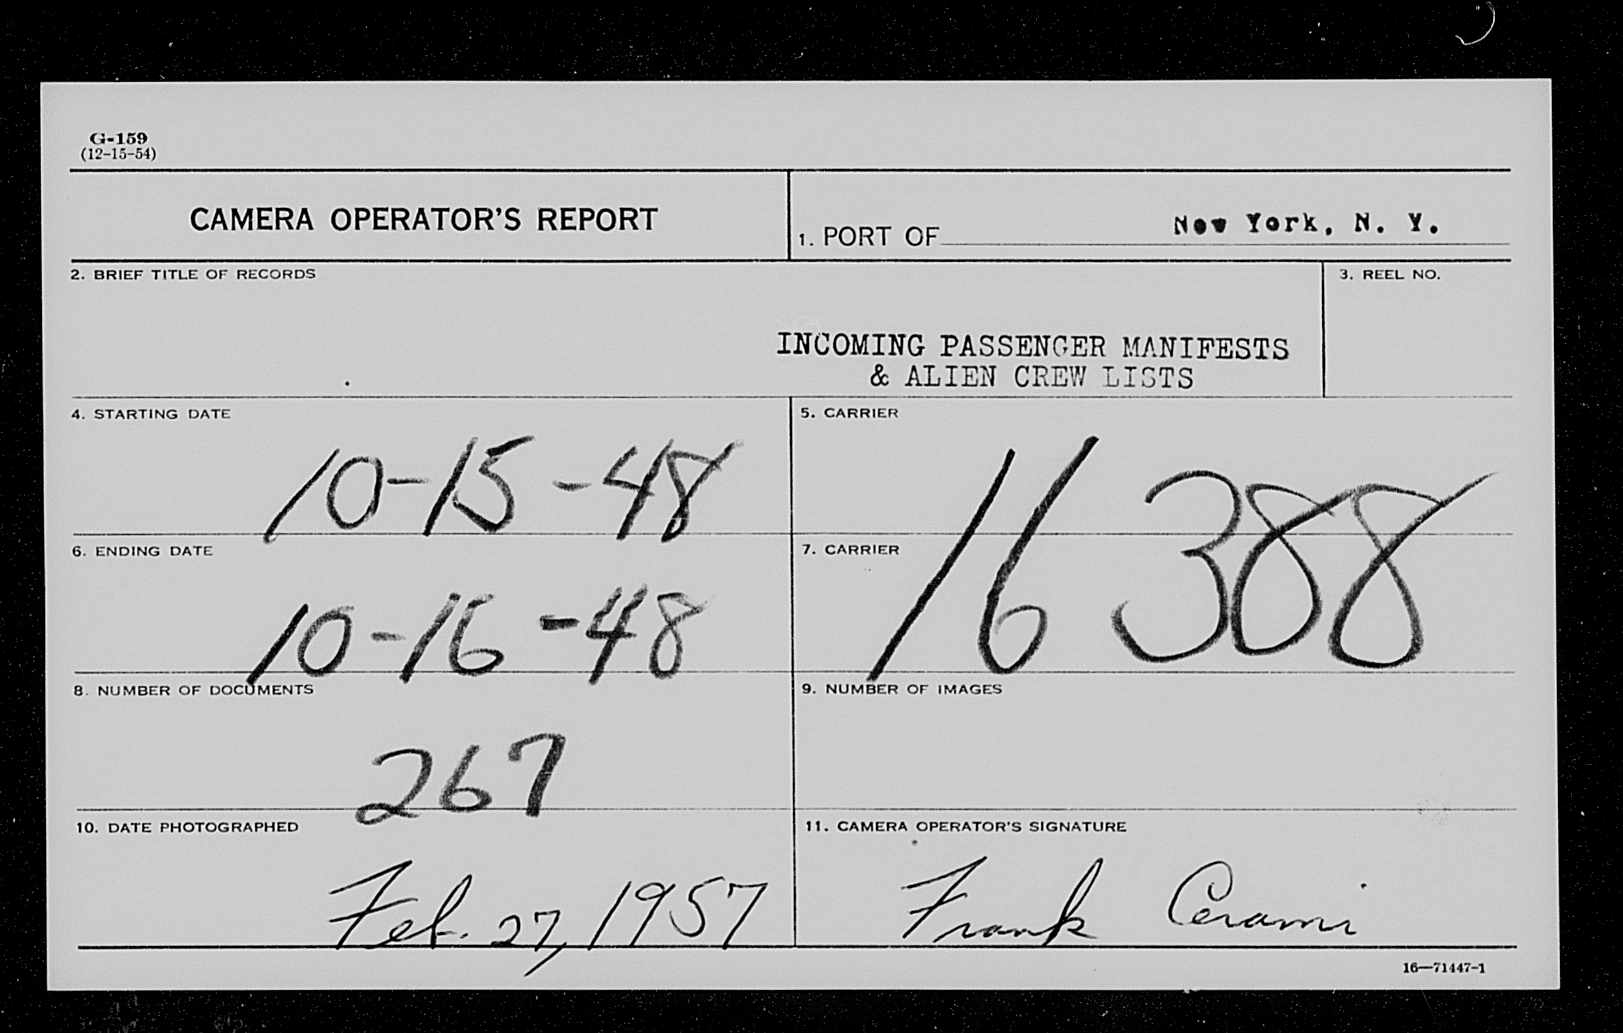 G-159
(12-15-54)
CAMERA OPERATOR'S REPORT
1. PORT OF New York, N. Y.
2. BRIEF TITLE OF RECORDS
3. REEL NO.
INCOMING PASSENGER MANIFESTS
& ALIEN CREW LISTS
4. STARTING DATE
10-15-48
5. CARRIER
16 388
6. ENDING DATE
10-16-48
7. CARRIER
8. NUMBER OF DOCUMENTS
267
9. NUMBER OF IMAGES
10. DATE PHOTOGRAPHED
Feb. 27, 1957
11. CAMERA OPERATOR'S SIGNATURE
Frank Cerami
16—71447-1